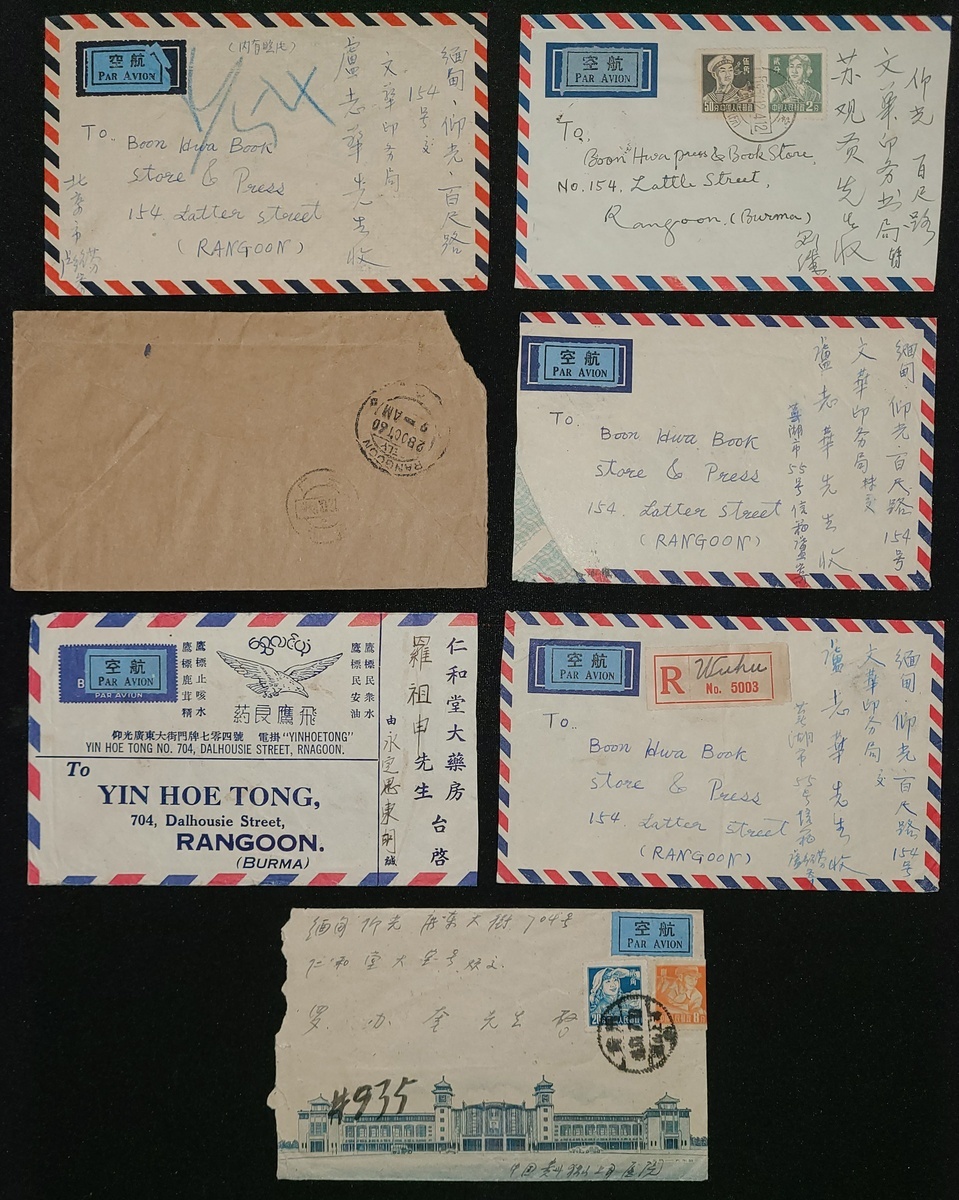 空航
PAR AVION
(内有照片)
To..
Boon Hwa Book
Store & Press
154. Latter street
(RANGOON)
缅甸、仰光、百尺路
154号
文華印务局
交
盧志華先生收
北京市
空航
PAR AVION
50分 中国人民邮政
中国人民邮政 2分
To,
Boon Hwa press & Book Store,
No. 154. Lattle Street,
Rangoon. (Burma)
仰光 百尺路
文華印务书局
苏观贡先生收
RANGOON
28OCT60
9-AM
空航
PAR AVION
To.
Boon Hwa Book
store & Press
154. Latter street
(RANGOON)
缅甸 仰光·百尺路 154号
文華印务局
盧志華先生收
蕪湖市55号信箱
空航
PAR AVION
PAR AVION
鷹標止咳水
鷹標鹿茸精
鷹標民衆水
鷹標民安油
藥良鷹飛
仰光廣東大街門牌七零四號 電掛 "YINHOETONG"
YIN HOE TONG NO. 704, DALHOUSIE STREET, RNAGOON.
To
YIN HOE TONG,
704, Dalhousie Street,
RANGOON.
(BURMA)
仁和堂大藥房 台啓
羅祖申先生
由永定思東胡緘
空航
PAR AVION
R Wuhu
No. 5003
To..
Boon Hwa Book
store & Press
154. Latter street
(RANGOON)
缅甸·仰光·百尺路 154号
文華印务局
交
盧志華先生收
蕪湖市55号信箱
缅甸仰光廣东大街704号
仁和堂大药号
罗办奎先生啓
空航
PAR AVION
#935